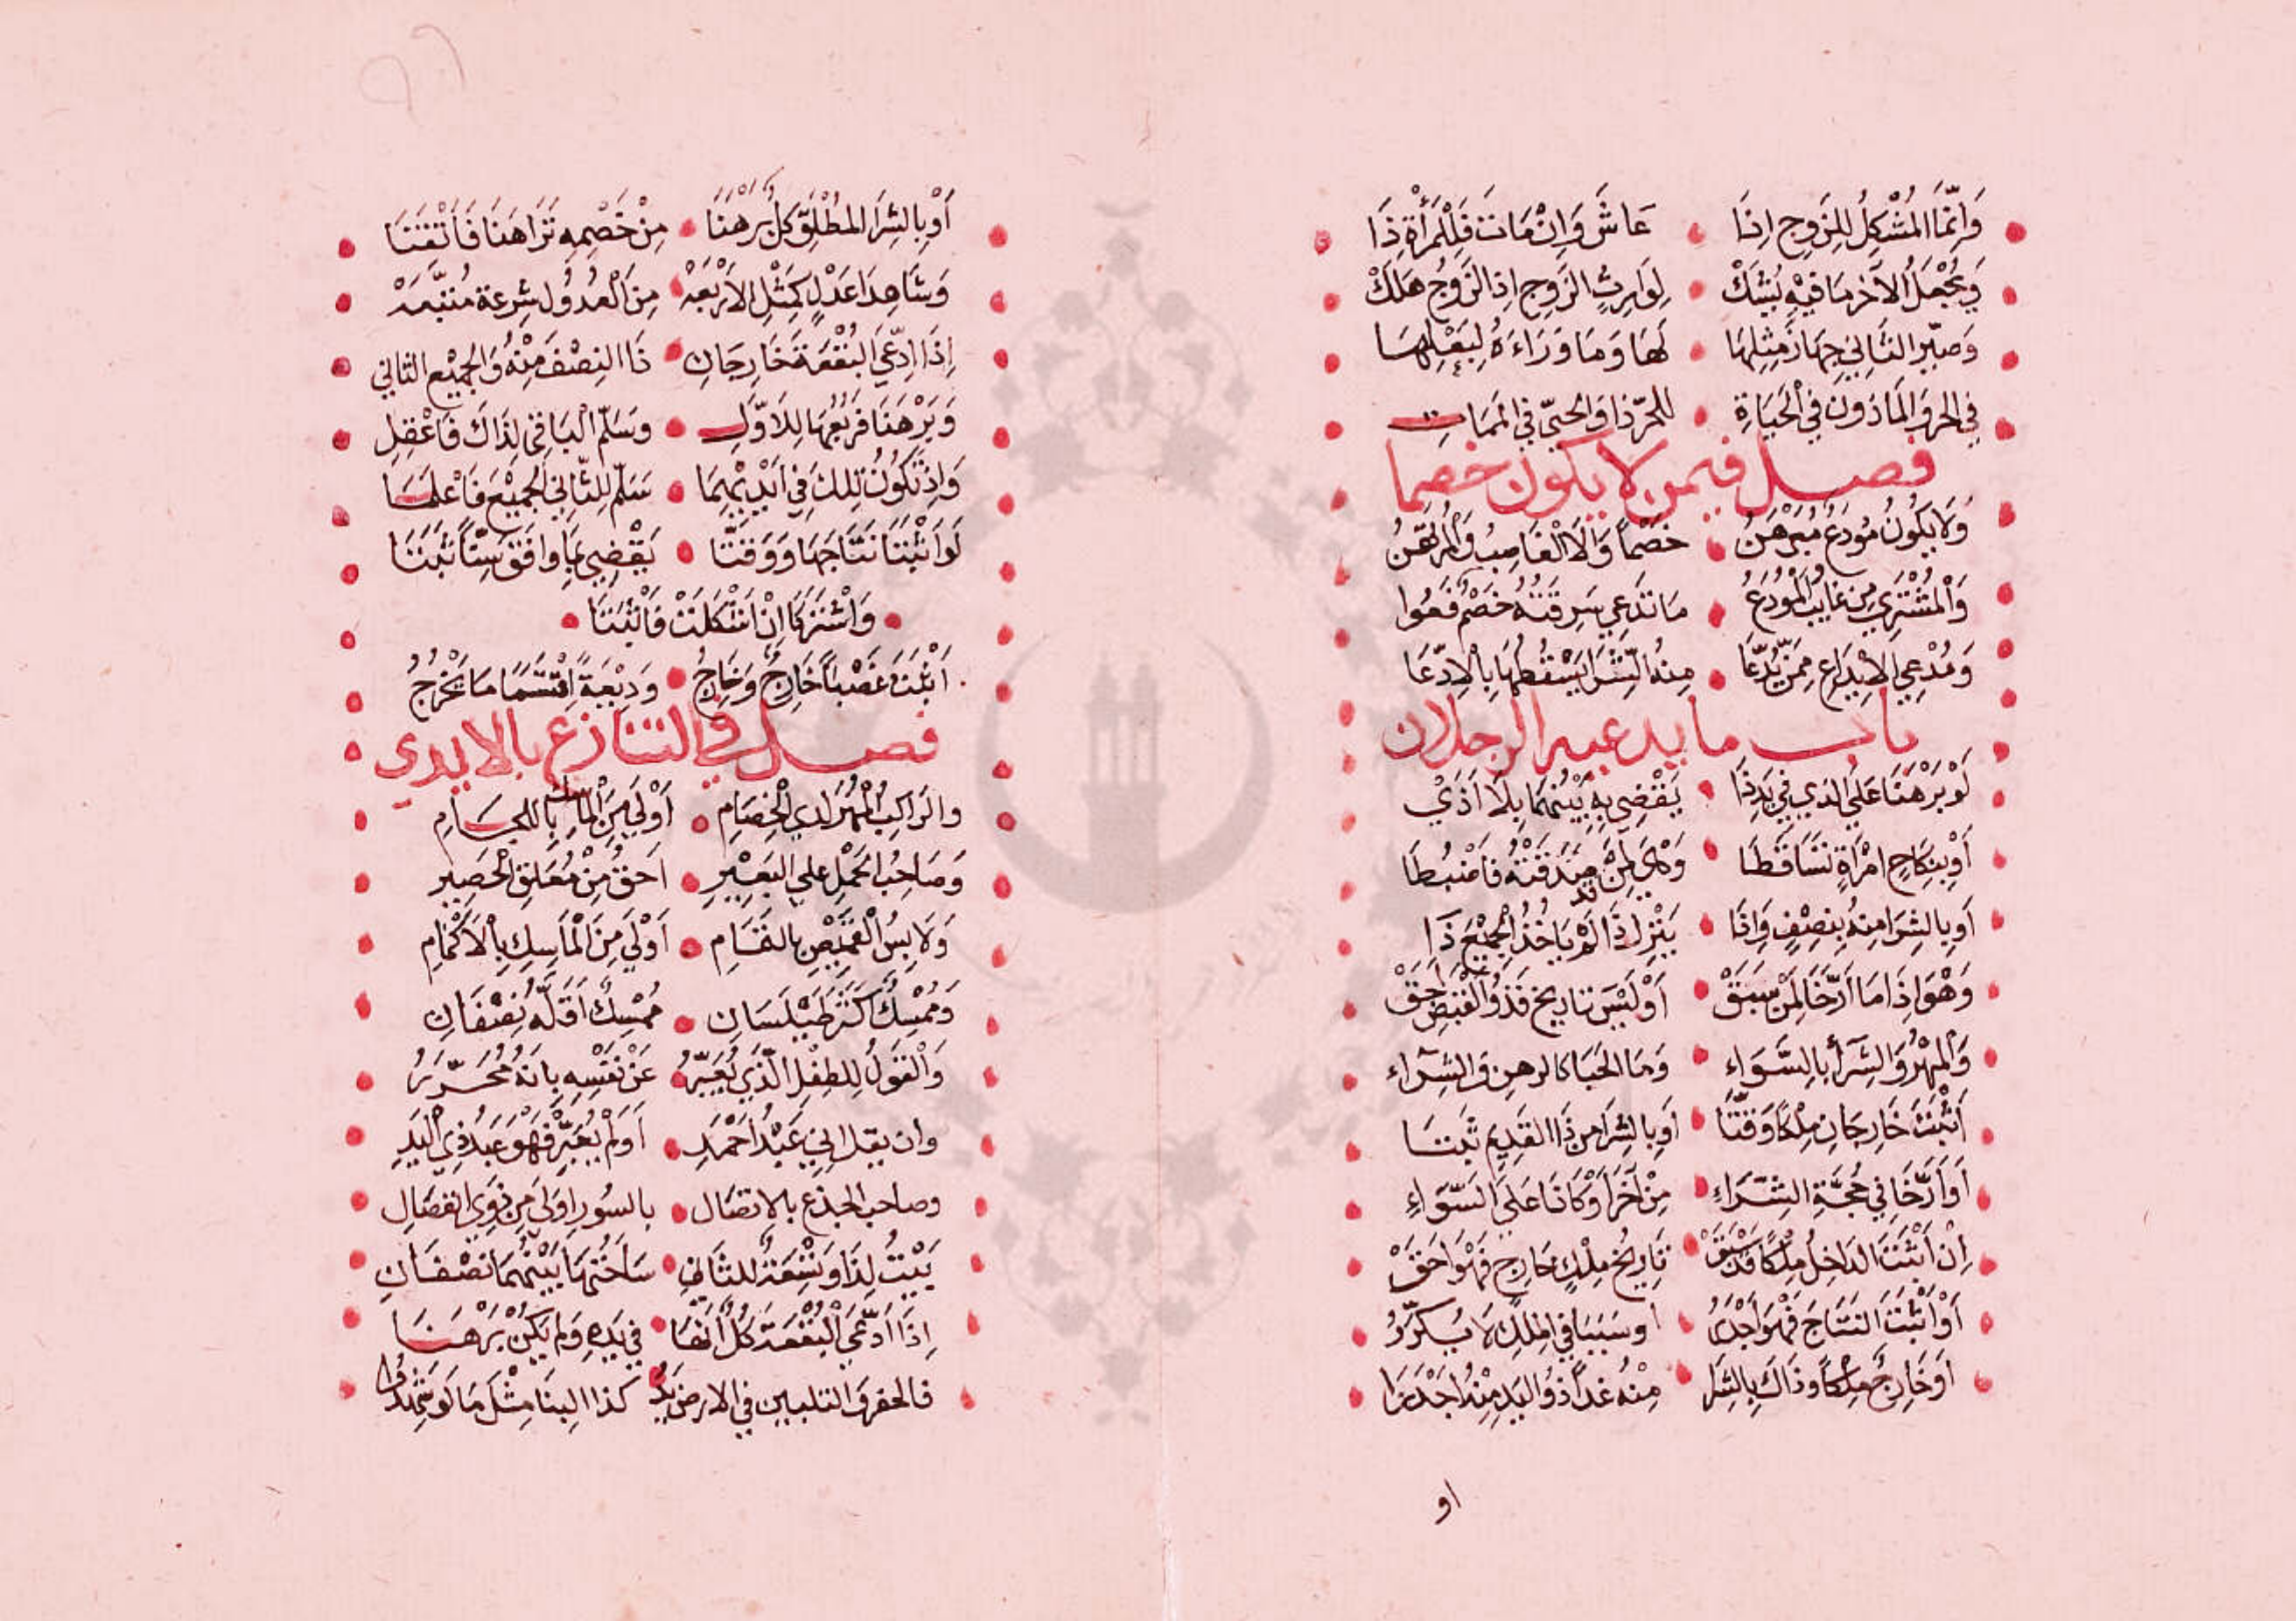 وَاِنَّمَا المُشْكِلُ لِلزَوجِ اِذَا عَاشَ وَاِنْ مَاتَ فَلِلْمَرْأَةِ ذَا
وَيُجْعَلُ الآخَرُ مَا فِيْهِ يُشَكّْ لِوَارِثِ الزَوجِ اِذِ الزَوْجُ هَلَكْ
وَصَيِّرِ الثَانِي جِهَازَ مِثْلِهَا لَهَا وَمَا وَرَاءَهُ لِبَعْلِهَا
فِي الحر وَالمَاذَونِ فِي الْحَيَاةِ للحُرّ ذا وَالحيّ فِي المَمَاتِ
فصل فيمن لا يكون خصما
وَلَا يَكُونُ مُودَعٌ مُبَرْهِنُ خَصْماً وَلَا الْغَاصِبُ وَالْمُرْتَهِنُ
وَالْمُشْتَرِي مِن غَايِبٍ وَالْمُودَعُ مَا تَدَعِي سَرِقَتَهُ خَصْمٌ فَعُوا
وَمُدْعِي الاِيْدَاعِ مِمَّنْ يُدَّعَا مِنهُ الشِّرَا يَسْقُطُهَا بِالْاِدِّعَا
باب ما يدعيه الرجلان
لَوْ بَرْهَنَا عَلَى الذي فِي يَدِ ذَا يَقْضِي بِهِ بَيْنَهُمَا بِلَا اَذَيْ
اَوْ بِنِكَاحِ امْرَاَةٍ تَسَاقَطَا وَهْيَ لِمَنْ صَدَقَتْهُ فَاضْبُطَا
اَو بِالشِرَا مِنهُ بِنِصْفٍ وَاِذَا يَنْزِلُ ذَا لَمْ يَاخُذِ الْجَمِيْعَ ذَا
وَهْوَ اِذَا مَا اَرَّخَا لِمَنْ سَبَقْ اَوْ لَيْسَ تَارِيخٌ فَذُو الْقَبْضِ اَحَقْ
وَالْمَهْرُ وَالشِرَا بِالسَّوَاءِ وَمَا الحَبَا كالرهن وَالشِرَاء
اَثْبَتَ خَارِجَانِ مِلْكًا وَقَّتَا اَو بِالشِرَا مِن ذَا القَدِيمِ ثَبَتَا
اَو اَرَّخَا فِي حُجَّةِ الشِرَاءِ مِنْ آخَرَ اَوْ كَانَا عَلَى السَّوَاءِ
اِنْ اَثْبَتَ الدَاخِلُ مِلْكًا قَدْ سَبَقْ تَارِيْخَ مِلْكِ خَارِجٍ فَهْوَ اَحَقّْ
اَوْ اَثْبَتَ النَتَاجَ فَهْوَ اَجْدَرُ اَو سَبَبًا فِي المِلْكِ لَا يُكَرَّرُ
اَو خَارِجٌ مِلْكًا وَذَاكَ بِالشِرَا مِنْهُ غَداً ذُو اليَدِ مِنْهُ اَجْدَرَا
او
اَوْ بِالشِرَا المُطْلَقِ كُلٌّ بَرْهَنَا مِنْ خَصْمِهِ تَرَاهَنَا فَاَتْقَنَا
وَشَاهِدَا عَدْلٍ كَمِثْلِ الاَرْبَعَهْ مِنَ الْعُدُولِ شِرعَة مُتَّبَعَهْ
اِذَا ادَّعَى الْبُقْعَةَ خَارِجَانِ ذَا النِصْفَ مِنْهُ وَالْجَمِيْعَ الثاني
وَبَرْهَنَا فَرُبْعُهَا لِلاَوَّلِ وَسَلِّمِ الْبَاقِي لِذَاكَ فَاعْقِلِ
وَاِذْ تَكُونُ تِلكَ فِي اَيْدِيْهِمَا سَلِّمْ لِلثَّانِي الْجَمِيْعَ فَاعْلَمَا
لَو اَثْبَتَا نَتَاجَهَا وَوَقَتَّا يَقْضِي بِمَا وَافَقَ سِنًّا ثَبَتَا
وَاشْتَرَكَا اِنْ اَشْكَلَتْ فَاَثْبَتَا
اَثْبَتَ غَصْباً خَارِجٌ وَخَارِجُ وَدِيْعَةً اِقْتَسَمَا مَا يَخْرُجُ
فصل في التنازع بالايدي
والرَاكِبُ الْمُهْرَ لدي الْخِصَامِ اَوْلَي مِنَ الْمَاسِكِ بِاللجَامِ
وَصَاحِبُ الحَمْلِ عَلي البَعِيْرِ اَحَقُ مِنْ مُعَلِقِ الْحَصِيْرِ
وَلَابِسُ الْقَمِيْصِ بِالتَمَامِ اَوْلَي مِنَ الْمَاسِكِ بِالْاَكْمَامِ
وَمُمْسِكٌ اَكْثَرَ طَيْلَسَانِ مُمْسِكُ اَقَلَّه نِصْفَانِ
وَالْقَولُ لِلطِفْلِ الَّذِي يُعَبِّرُ عَنْ نَفْسِهِ بِاَنَهُ مُحَرَّرُ
وان يقل اِنِي عَبْدُ اَحْمَدِ اَوْ لَمْ يُعَبِّرْ فَهْوَ عَبْدُ ذِي الْيَدِ
وصاحب الجذع بالاتصَال بالسُورِ اَولَى مِن ذوِي انفصَالِ
بَيْتٌ لِذَا وَتِسْعَةٌ لِلثَانِي سَاحَتُهَا بَيْنَهُمَا نصْفَانِ
اِذَا ادَّعَي الْبُقْعَةَ كُلٌّ اَنهَا فِي يَدِهِ وَلَم يَكُنْ بَرْهَنَا
فالحفر وَالتلبين فِي الارض يَدُ كذا البِنَا مِثْلَ مَا لَو شَهِدُوا